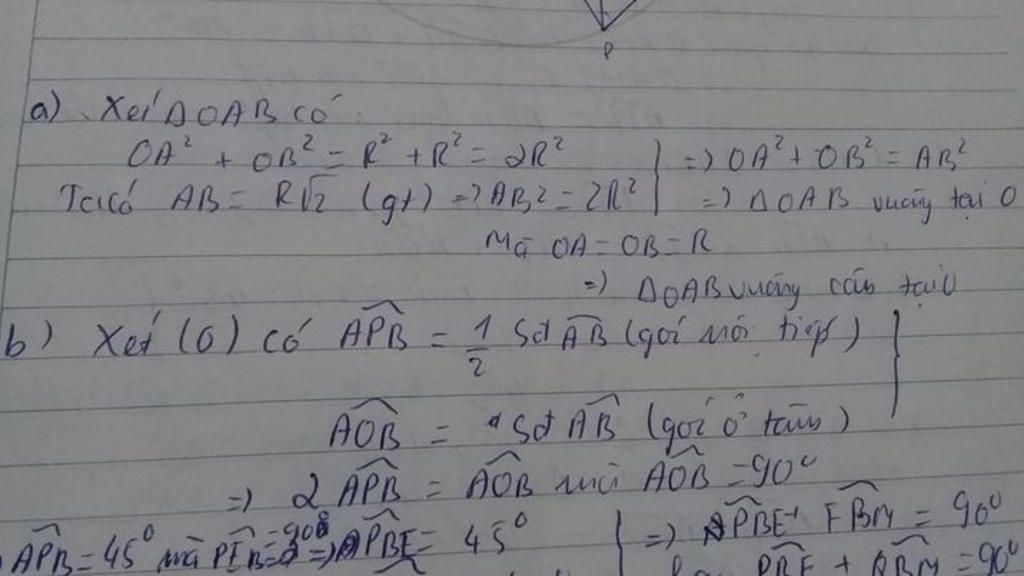 P
a) Xét ΔOAB có:
OA² + OB² = R² + R² = 2R² | => OA² + OB² = AB²
Ta có AB = R√2 (gt) => AB² = 2R² | => ΔOAB vuông tại O
Mà OA = OB = R
=> ΔOAB vuông cân tại O
b) Xét (O) có APB = 1/2 Sđ AB (góc nội tiếp) }
AOB = Sđ AB (góc ở tâm)
=> 2 APB = AOB mà AOB = 90°
APB = 45° mà PEB = 90° => PBE = 45° | => PBE + FBM = 90°
+ = 90°